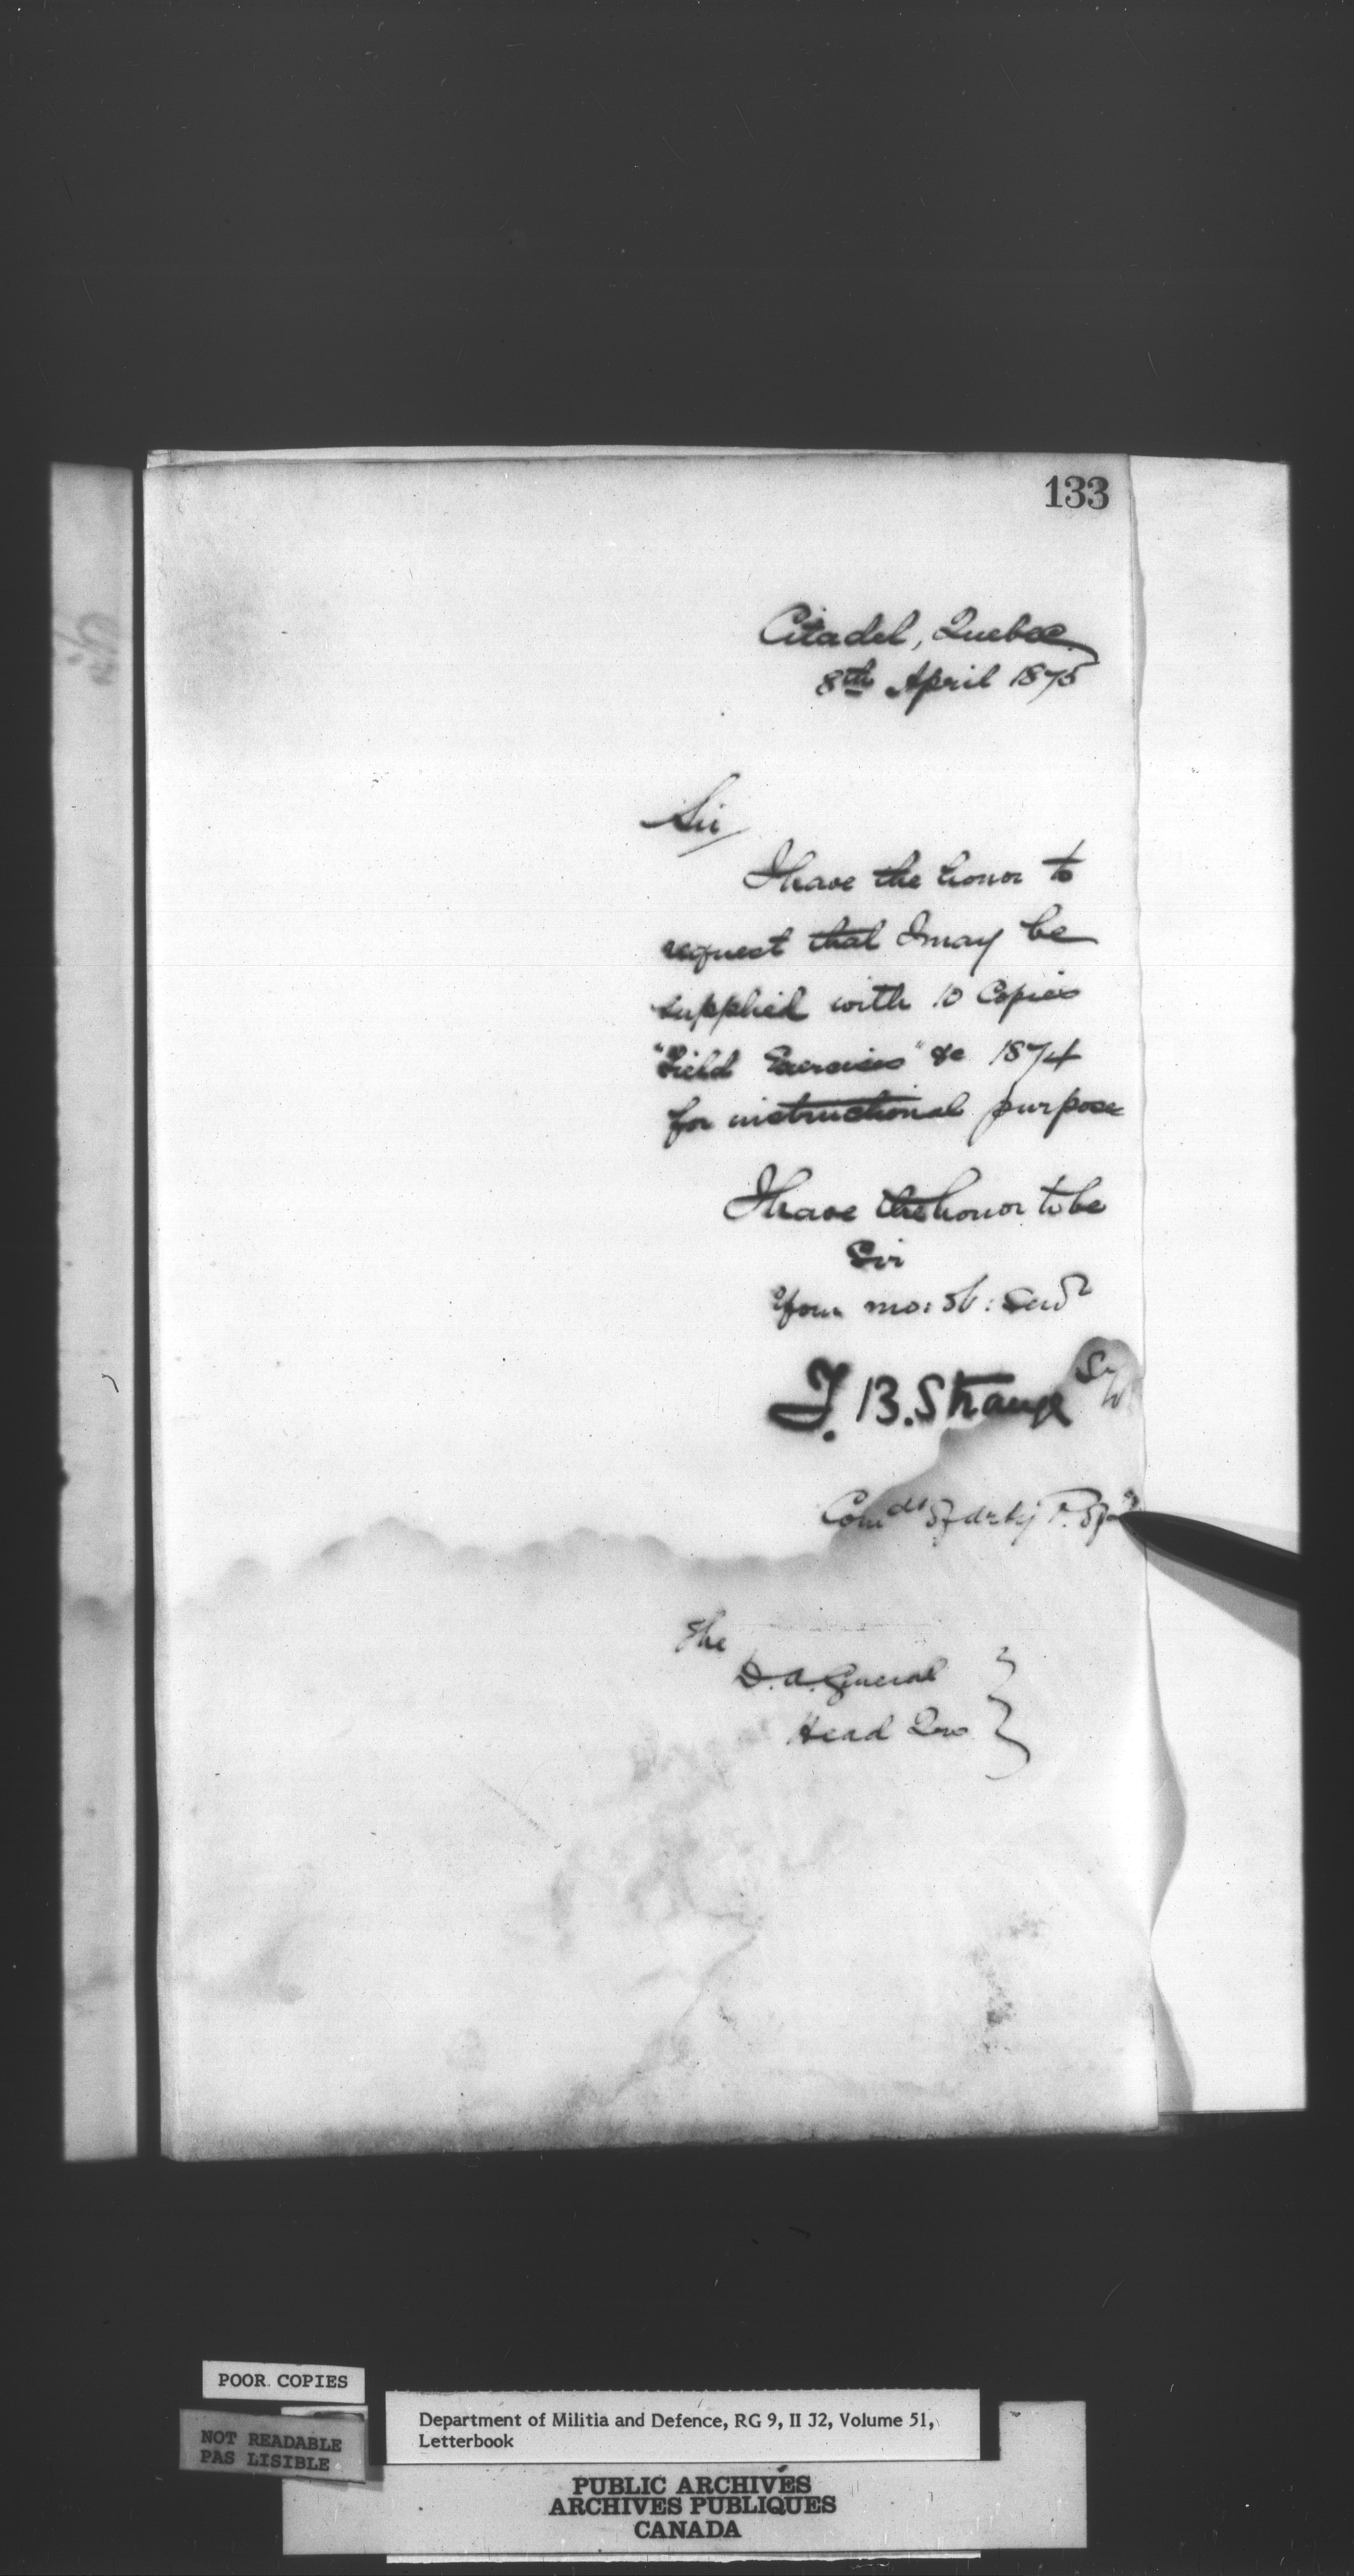 133
Citadel, Quebec
8th April 1875
Sir
I have the honor to
request that I may be
supplied with 10 Copies
"Field Exercises" &c 1874
for instructional purpose
I have the honor to be
Sir
Your mo: ob: Servt
T. B. Strange
Comdt
The
D. A. General
Head Qrs
POOR COPIES
NOT READABLE
PAS LISIBLE
Department of Militia and Defence, RG 9, II J2, Volume 51,
Letterbook
PUBLIC ARCHIVES
ARCHIVES PUBLIQUES
CANADA